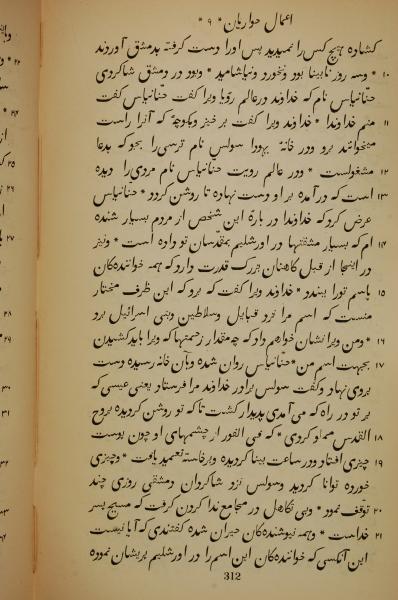 اعمال حواریان * ۹ *
کشاده هیچ کس را نمیدید پس اورا دست کرفته بدمشق آوردند
۱۰ * وسه روز نابینا بود ونخورد ونیاشامید * وبود در دمشق شاکردی
حنّانیاس نام که خداوند درعالم رؤیا ویرا کفت حنّانیاس کفت
۱۱ منم خداوندا * خداوند ویرا کفت بر خیز وبکوچه که آنرا راست
میخوانند برو ودر خانهٔ یهودا سولس نام ترسی را بجو که بدعا
۱۲ مشغولست * ودر عالم رویت حنّانیاس نام مردی را دیده
۱۳ است که درآمده بر او دست نهاده تا روشن کردد * حنّانیاس
عرض کرد که خداوندا در بارهٔ این شخص از مردم بسیار شنده
۱۴ ام که بسیار مشقتها در اورشلیم بمقدّسان تو داده است * ونیز
در اینجا از قبل کاهنان بزرک قدرت دارد که همه خوانندکان
۱۵ باسم تورا ببندد * خداوند ویرا کفت که برو که این ظرف مختار
منست که اسم مرا نزد قبایل وسلاطین وبنی اسرائیل برد
۱۶ * ومن ویرا نشان خواهم داد که چه مقدار زحمتها که ویرا باید کشیدن
۱۷ بجهت اسم من * حنّانیاس روان شده وبآن خانه رسیده دست
بروی نهاد وکفت سولس برادر خداوند مرا فرستاد یعنی عیسی که
بر تو در راه که می آمدی پدیدار کشت تا که تو روشن کردیده بروح
۱۸ القدس مملو کردی * که فی الفور از چشمهای او چون پوست
۱۹ چیزی افتاد ودر ساعت بینا کردیده وبرخاسته تعمید یافت * وچیزی
خورده توانا کردید وسولس نزد شاکردان دمشقی روزی چند
۲۰ توقف نمود * وبی تکاهل در مجامع ندا کردن کرفت که مسیح پسر
۲۱ خداست * وهمه نیوشنده کان حیران شده کفتندی که آیا نیست
این آنکسی که خوانندکان این اسم را در اورشلیم پریشان نموده
312